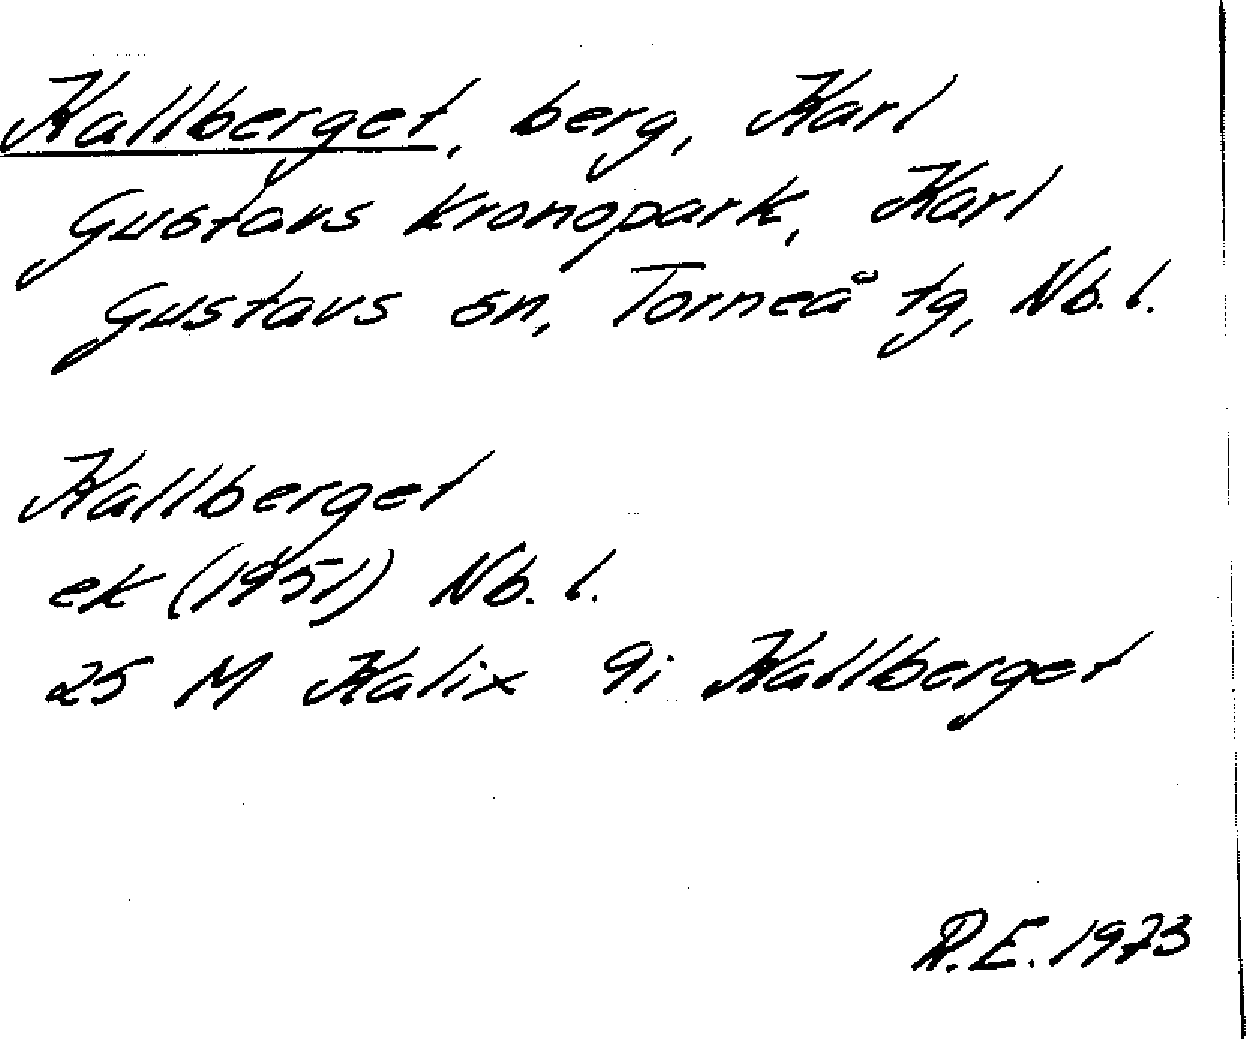 Kallberget, berg, Karl
Gustavs kronopark, Karl
Gustavs sn, Torneå tg, Nb. l.
Kallberget
ek (1951) Nb. l.
25 M Kalix 9i Kallberget
R.E. 1973